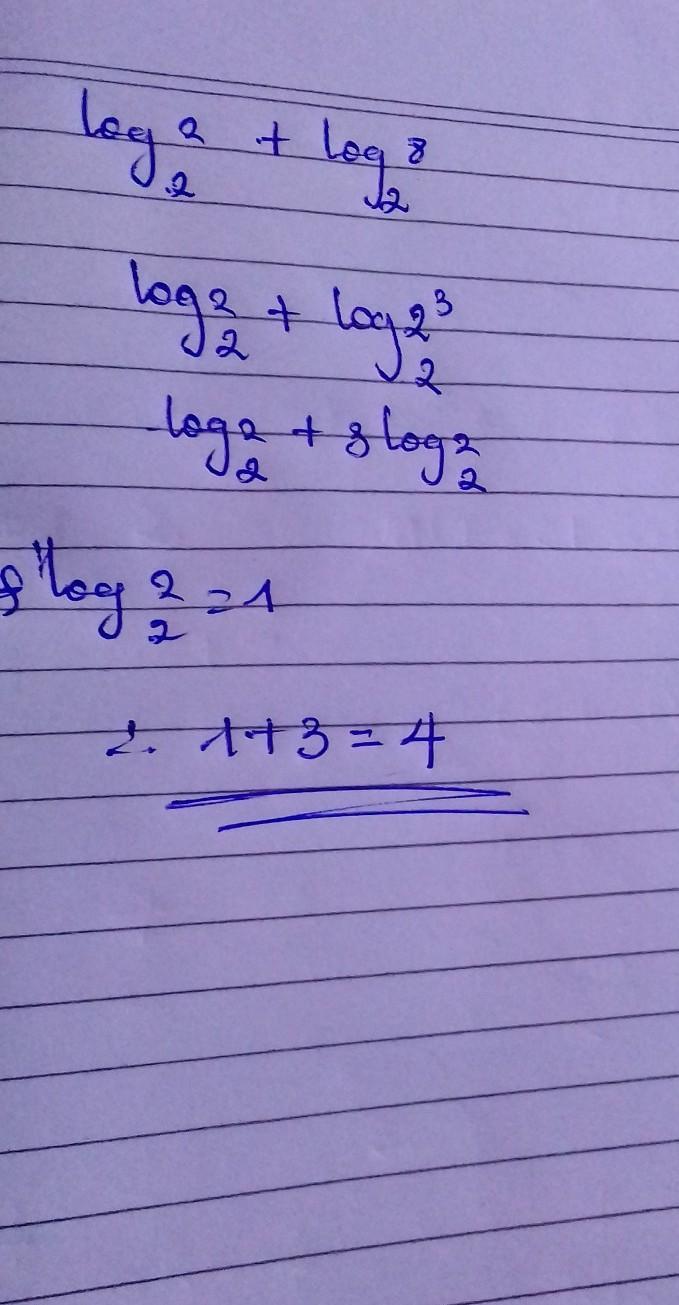 log₂ 2 + log₂ 8
log₂ 2 + log₂ 2³
log₂ 2 + 3 log₂ 2
log₂ 2 = 1
∴ 1 + 3 = 4